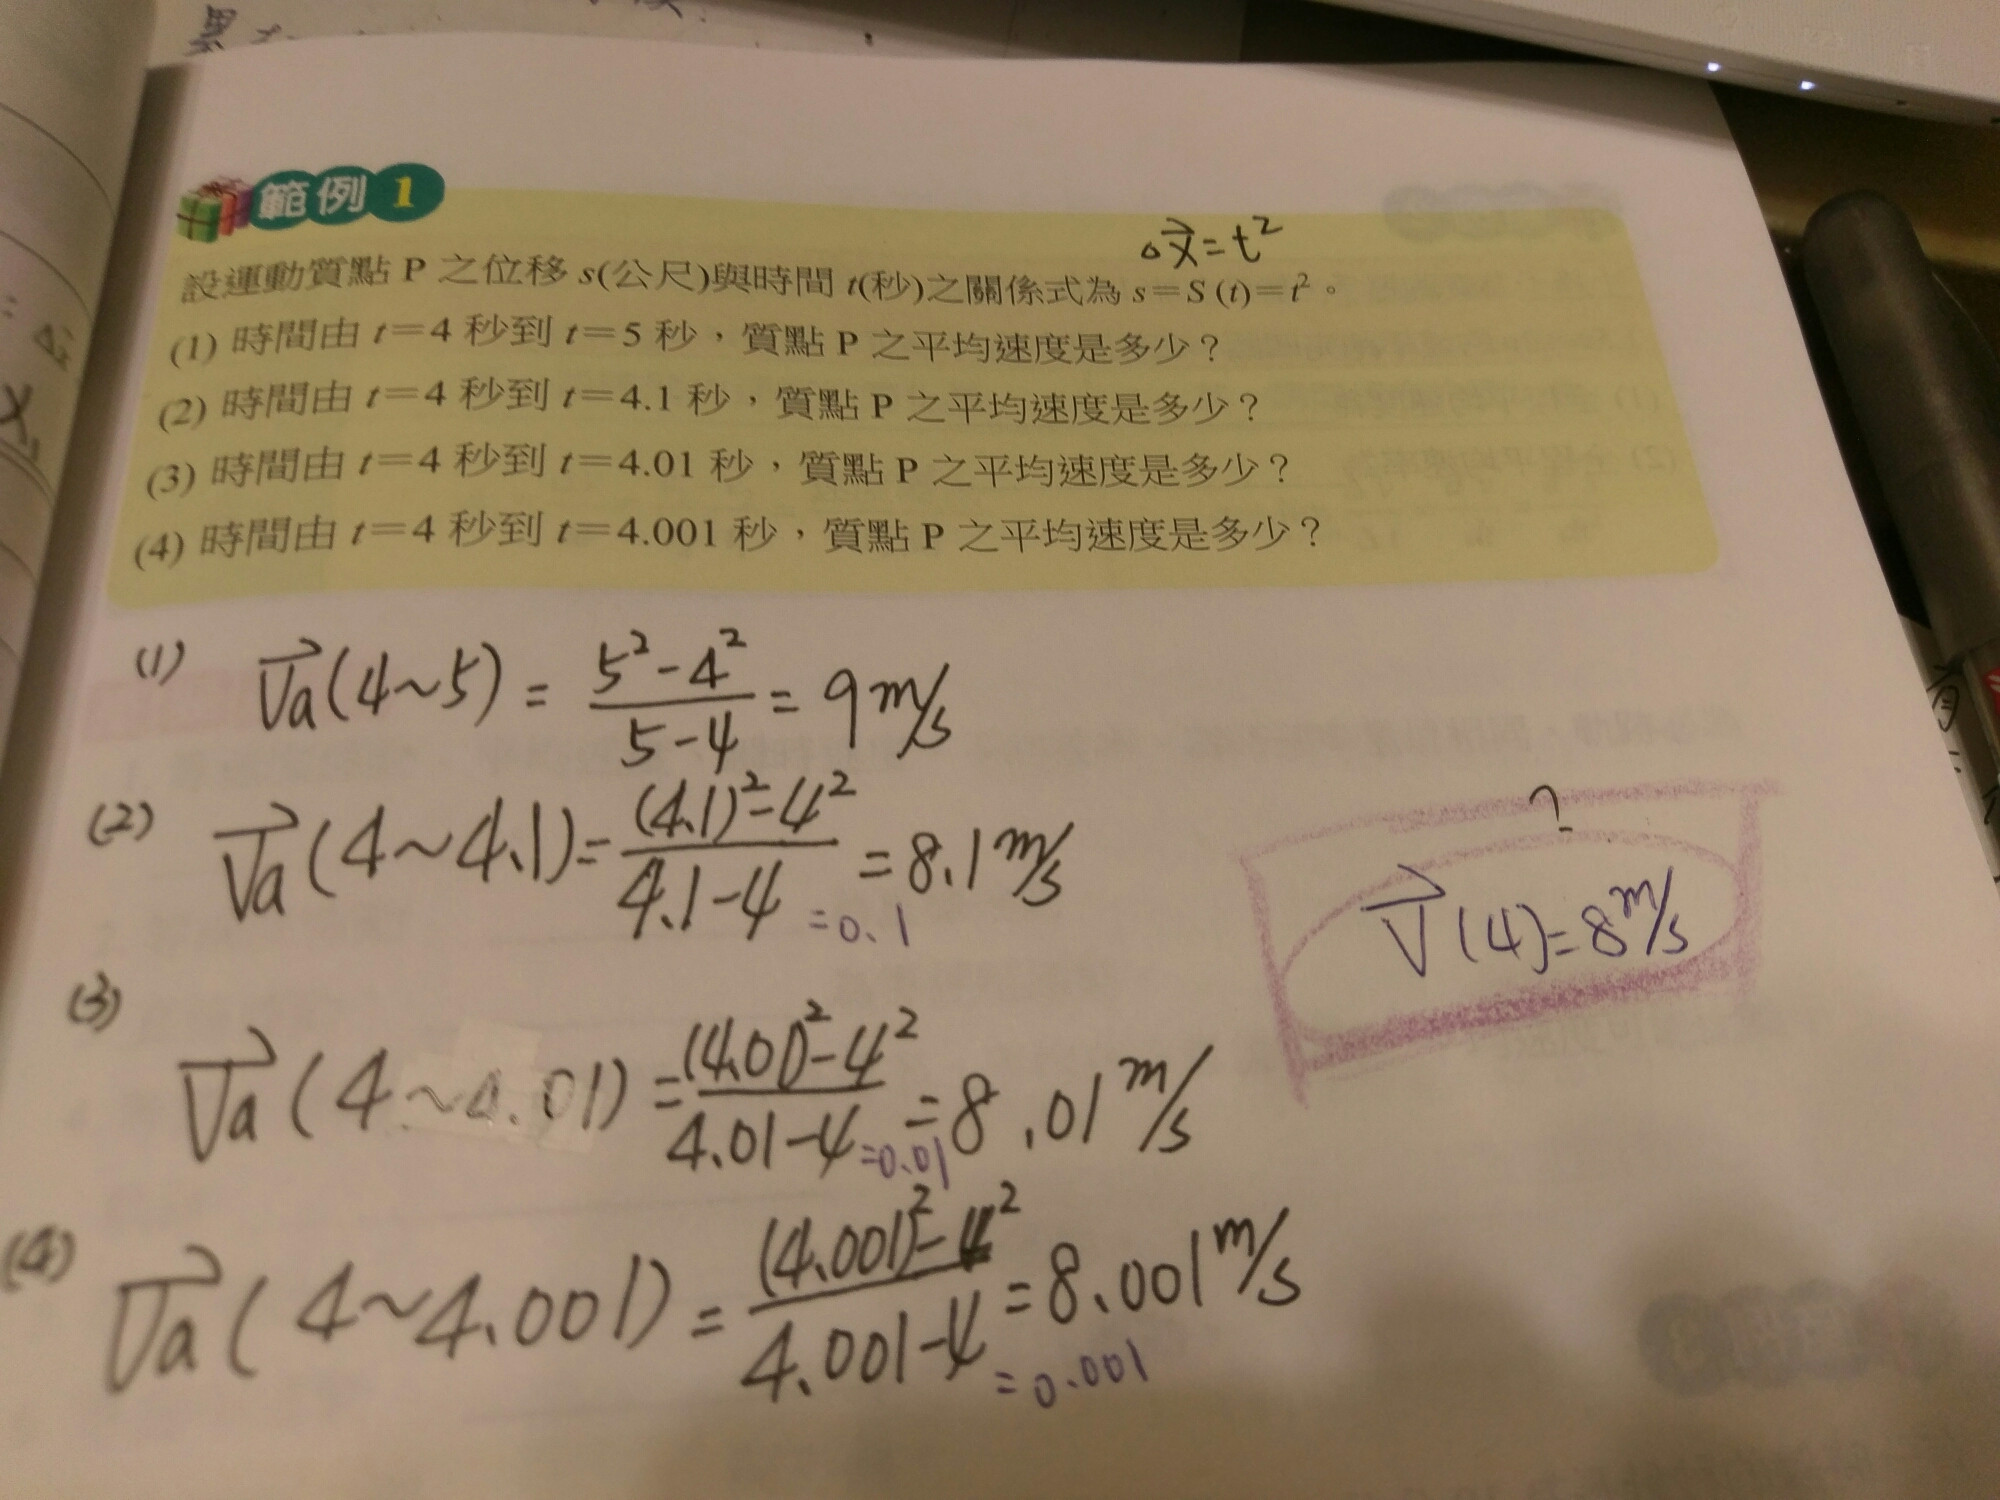 範例 1
△x⃗=t²
設運動質點 P 之位移 s(公尺)與時間 t(秒)之關係式為 s=S (t)=t²。
(1) 時間由 t=4 秒到 t=5 秒，質點 P 之平均速度是多少？
(2) 時間由 t=4 秒到 t=4.1 秒，質點 P 之平均速度是多少？
(3) 時間由 t=4 秒到 t=4.01 秒，質點 P 之平均速度是多少？
(4) 時間由 t=4 秒到 t=4.001 秒，質點 P 之平均速度是多少？
(1) V⃗a(4~5) = (5²-4²)/(5-4) = 9 m/s
(2) V⃗a(4~4.1) = ((4.1)²-4²)/(4.1-4 =0.1) = 8.1 m/s
?
V⃗(4)=8 m/s
(3) V⃗a(4~4.01) = ((4.01)²-4²)/(4.01-4 =0.01) = 8.01 m/s
(4) V⃗a(4~4.001) = ((4.001)²-4²)/(4.001-4 =0.001) = 8.001 m/s